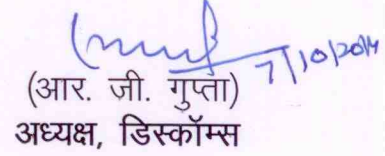 7/10/2014
(आर. जी. गुप्ता)
अध्यक्ष, डिस्कॉम्स